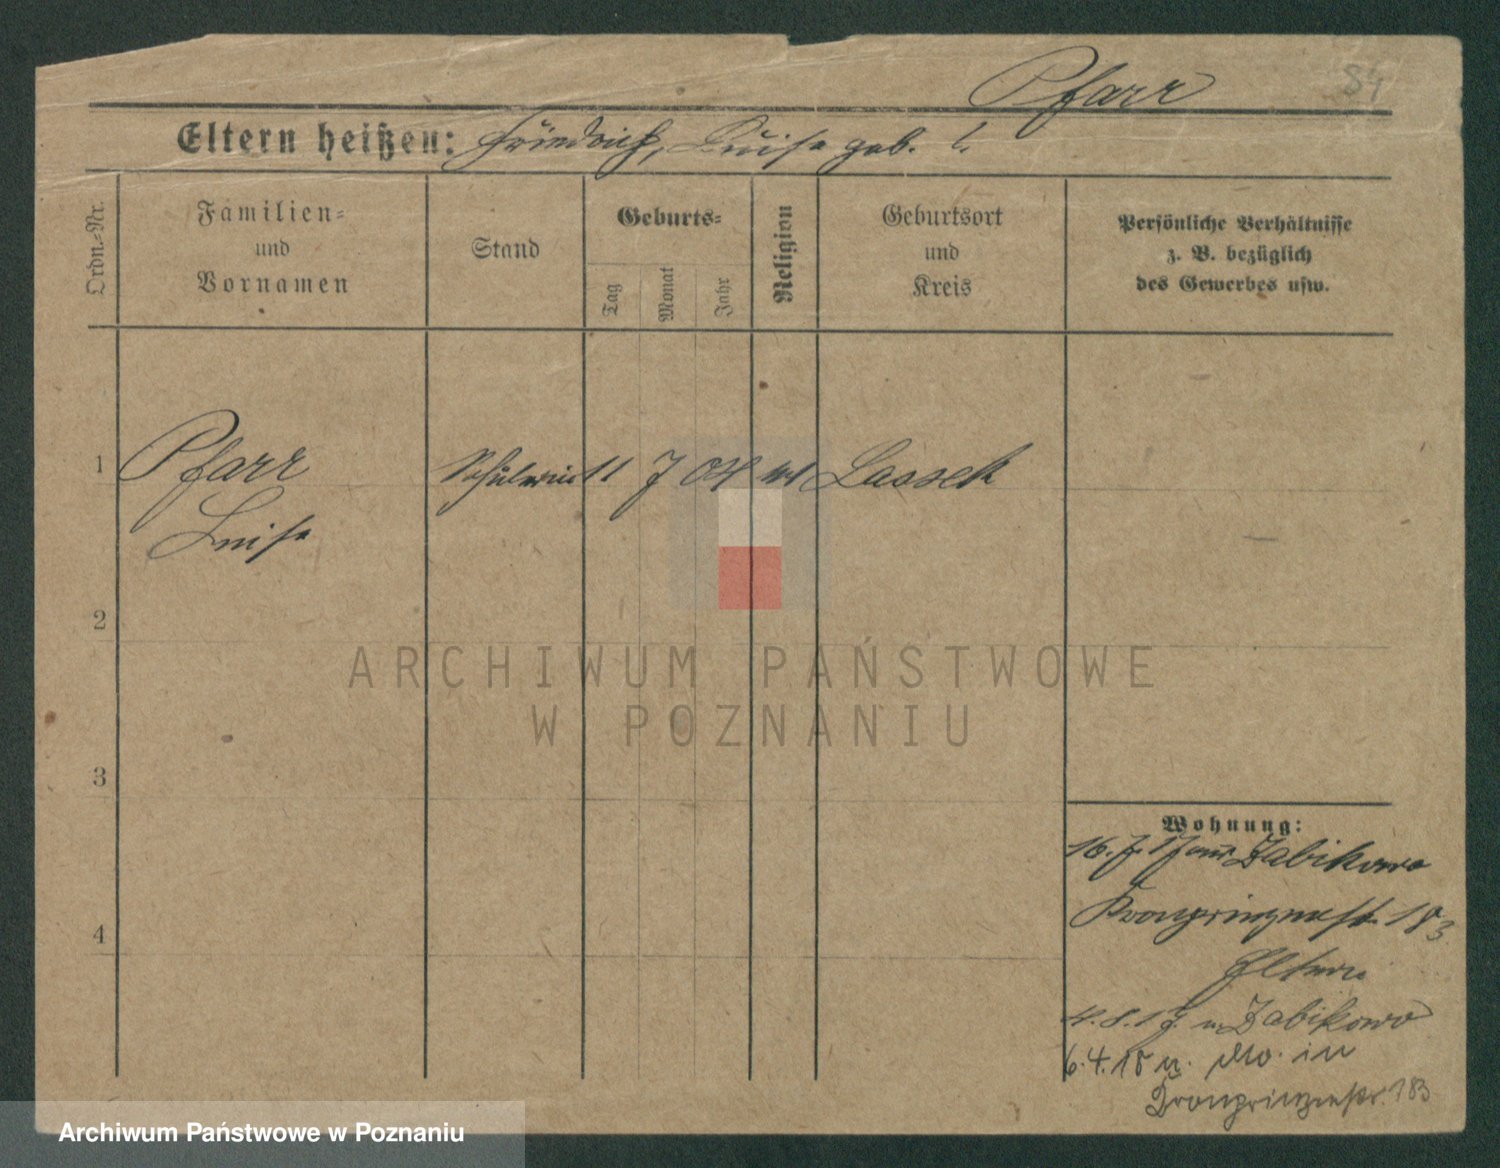 Pfarr
84
Eltern heißen: Friedrich, Luise geb.
Ordn.-Nr.
Familien-
und
Vornamen
Stand
Geburts-
Tag
Monat
Jahr
Religion
Geburtsort
und
Kreis
Persönliche Verhältnisse
z. B. bezüglich
des Gewerbes usw.
1 Pfarr 11 7 04 Lassek
Luise
2
3
4
Wohnung:
16. 7. 17 Zabikowo
Kronprinzenstr. 183
Eltern
4. 8. 17 n. Zabikowo
6. 4. 18 n. in
Kronprinzenstr. 183
ARCHIWUM PAŃSTWOWE
W POZNANIU
Archiwum Państwowe w Poznaniu